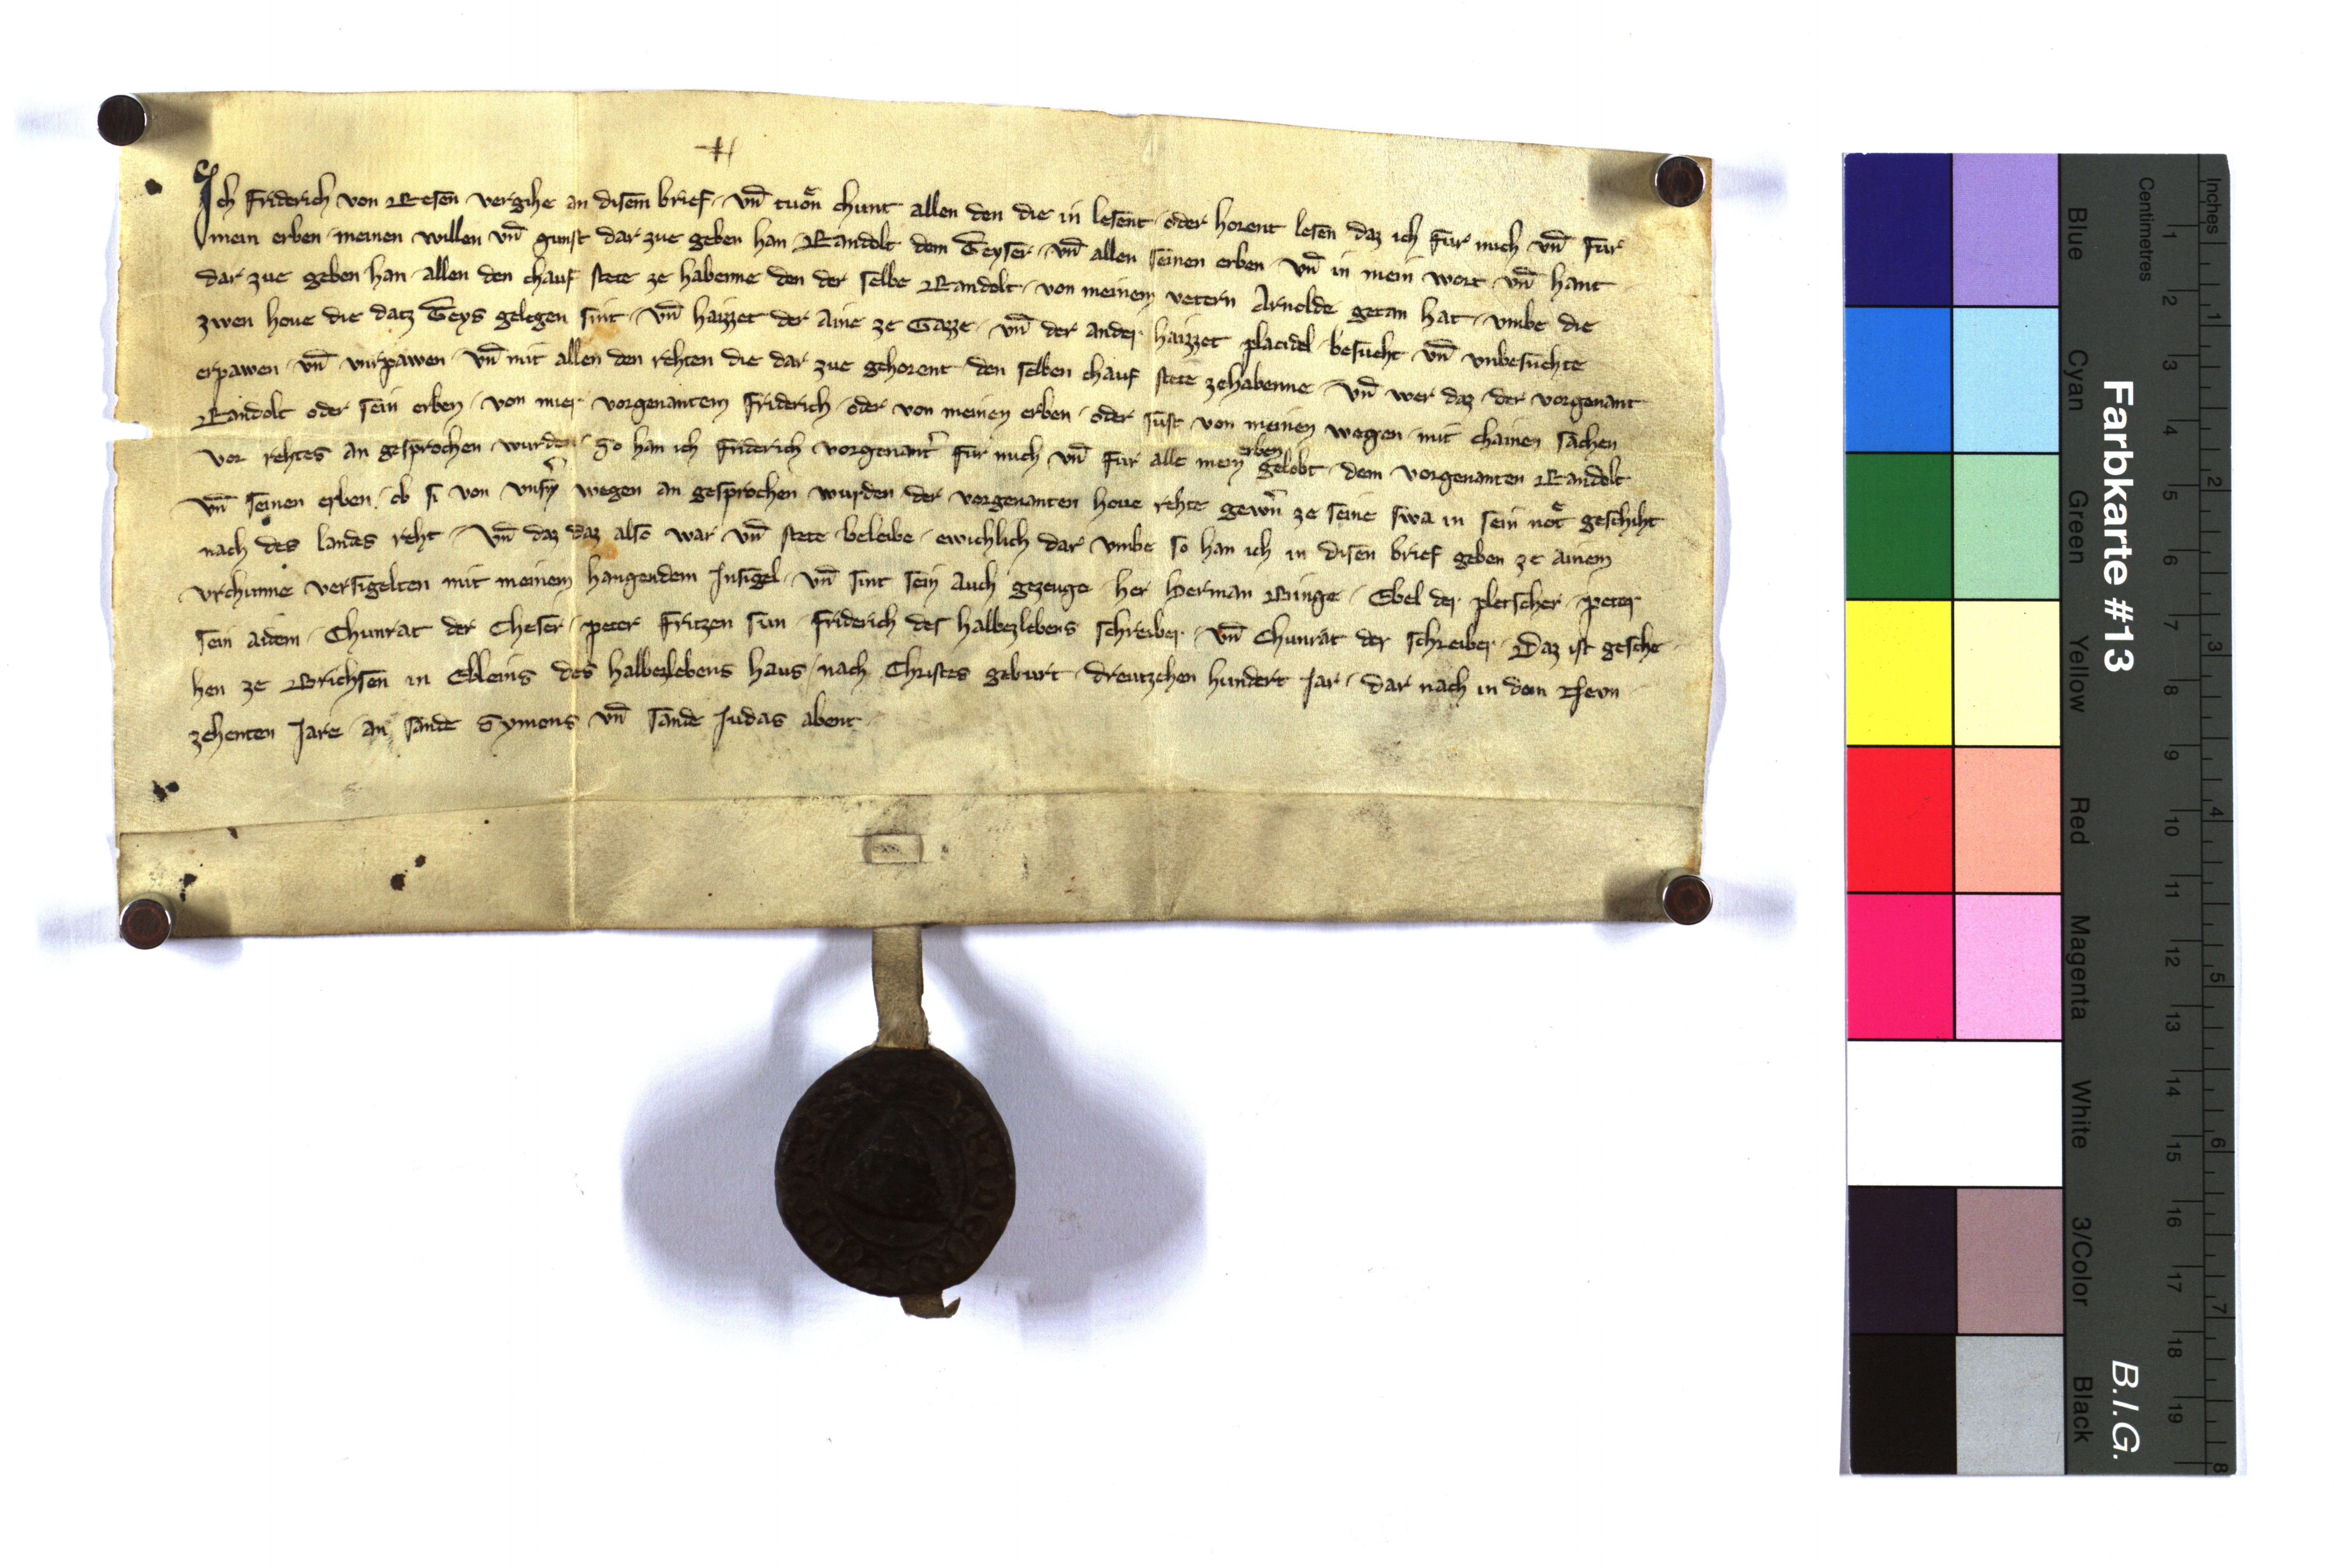 Ich Friderich von Resen vergihe an disem brief · vn̄ tuͦn chunt allen den die in lesent · oder horent lesen daz ich fur mich vn̄ fur
mein erben · meinen willen vn̄ gunst dar zue geben han · Randolt dem Teyser · vn̄ allen seinen erben · vn̄ in mein wort · vn̄ hant
dar zue geben han · allen den chauf stete ze habenne den der selbe Randolt · von meinem vetern Arnolde getan hat · vmbe die
zwen houe die datz Teys gelegen sint · vn̄ haizzet der Aine ze Gazze · vn̄ der ander haizzet placidel · besucht vn̄ vnbesuchte
erpawen · vn̄ vnrpawen · vn̄ mit allen den rehten die dar zue gehorent · den selben chauf stete zehabenne · vn̄ wer daz · der vorgenant
Randolt oder sein erben · von mier vorgenantem Friderich · oder von meinen erben · oder sust von meinen wegen · mit chainen sachen
vor rehtes an gesprochen wurde · So han ich Friderich vorgenant fur mich vn̄ fur alle mein erben gelobt · dem vorgenanten Randolt
vn̄ seinen erben · ob si von vnsern wegen an gesprochen wurden der vorgenanten houe rehte gewern ze seine swa in sein not geschiht
nach des landes reht · Vn̄ daz daz also war vn̄ stete beleibe · ewichlich dar vmbe so han ich in disen brief geben ze ainem
vrchunne versigelten mit meinem hangendem Insigel · vn̄ sint sein auch gezeuge · her Herman Ringe · Ebel der pletscher · peter
sein aidem · Chunrat der Cheser · peter Fritzen sun · Friderich des halbezlebens schreiber · vn̄ Chunrat der schreiber · Daz ist gesche
hen ze Brichsen in Ebleins des halbezlebens haus · nach Christes geburt · dreutzehen hundert Jar · dar nach in dem
zehenten Jare · an sande Symons vn̄ sande Judas abent
Farbkarte #13
B.I.G.
Blue Cyan Green Yellow Red Magenta White 3/Color Black
Centimetres 1 2 3 4 5 6 7 8 9 10 11 12 13 14 15 16 17 18 19
Inches 1 2 3 4 5 6 7 8